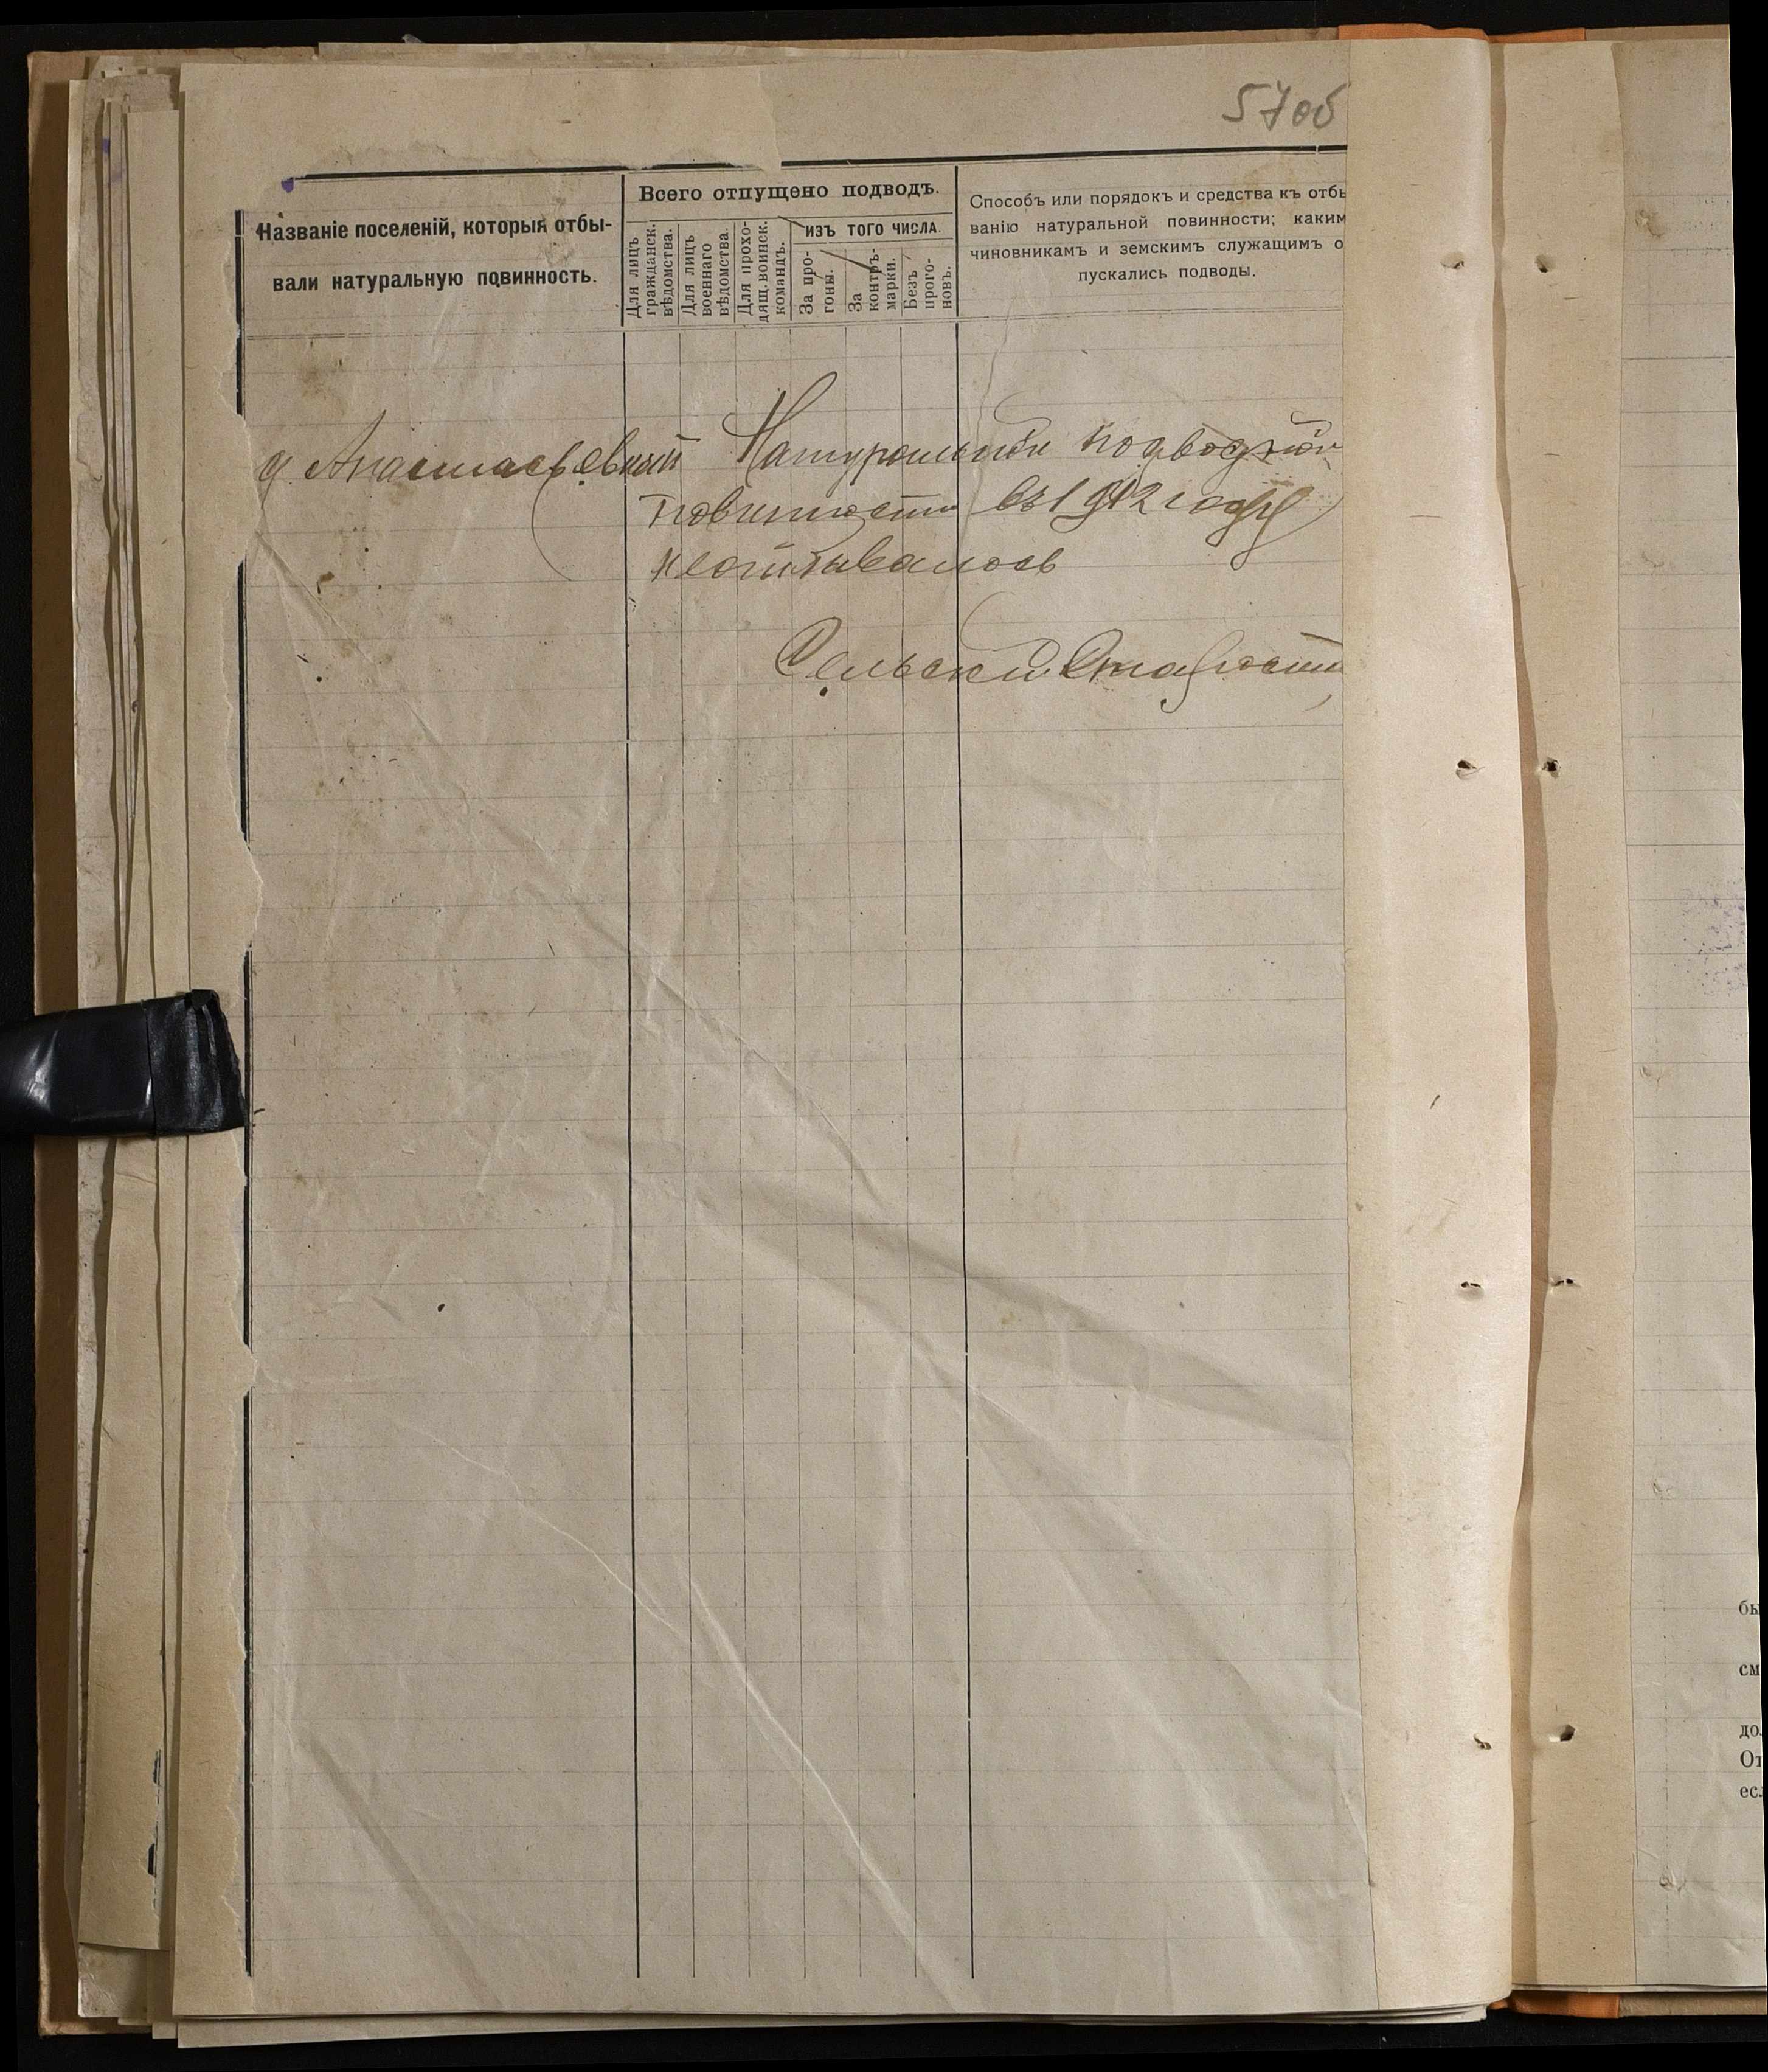 57об
Названіе поселеній, которыя отбы-
вали натуральную повинность.
Всего отпущено подводъ.
Для лицъ
гражданск.
вѣдомства.
Для лицъ
военнаго
вѣдомства.
Для прохо-
дящ. воинск.
командъ.
изъ того числа.
За про-
гоны.
За
контръ-
марки.
Безъ
прого-
новъ.
Способъ или порядокъ и средства къ отбы
ванію натуральной повинности; каким
чиновникамъ и земскимъ служащимъ о
пускались подводы.
д. Анастасьевной Натуральной подводной
повинности въ 1912 году
неотбывалось
Сельский Старости
бы
см
до.
От
есл